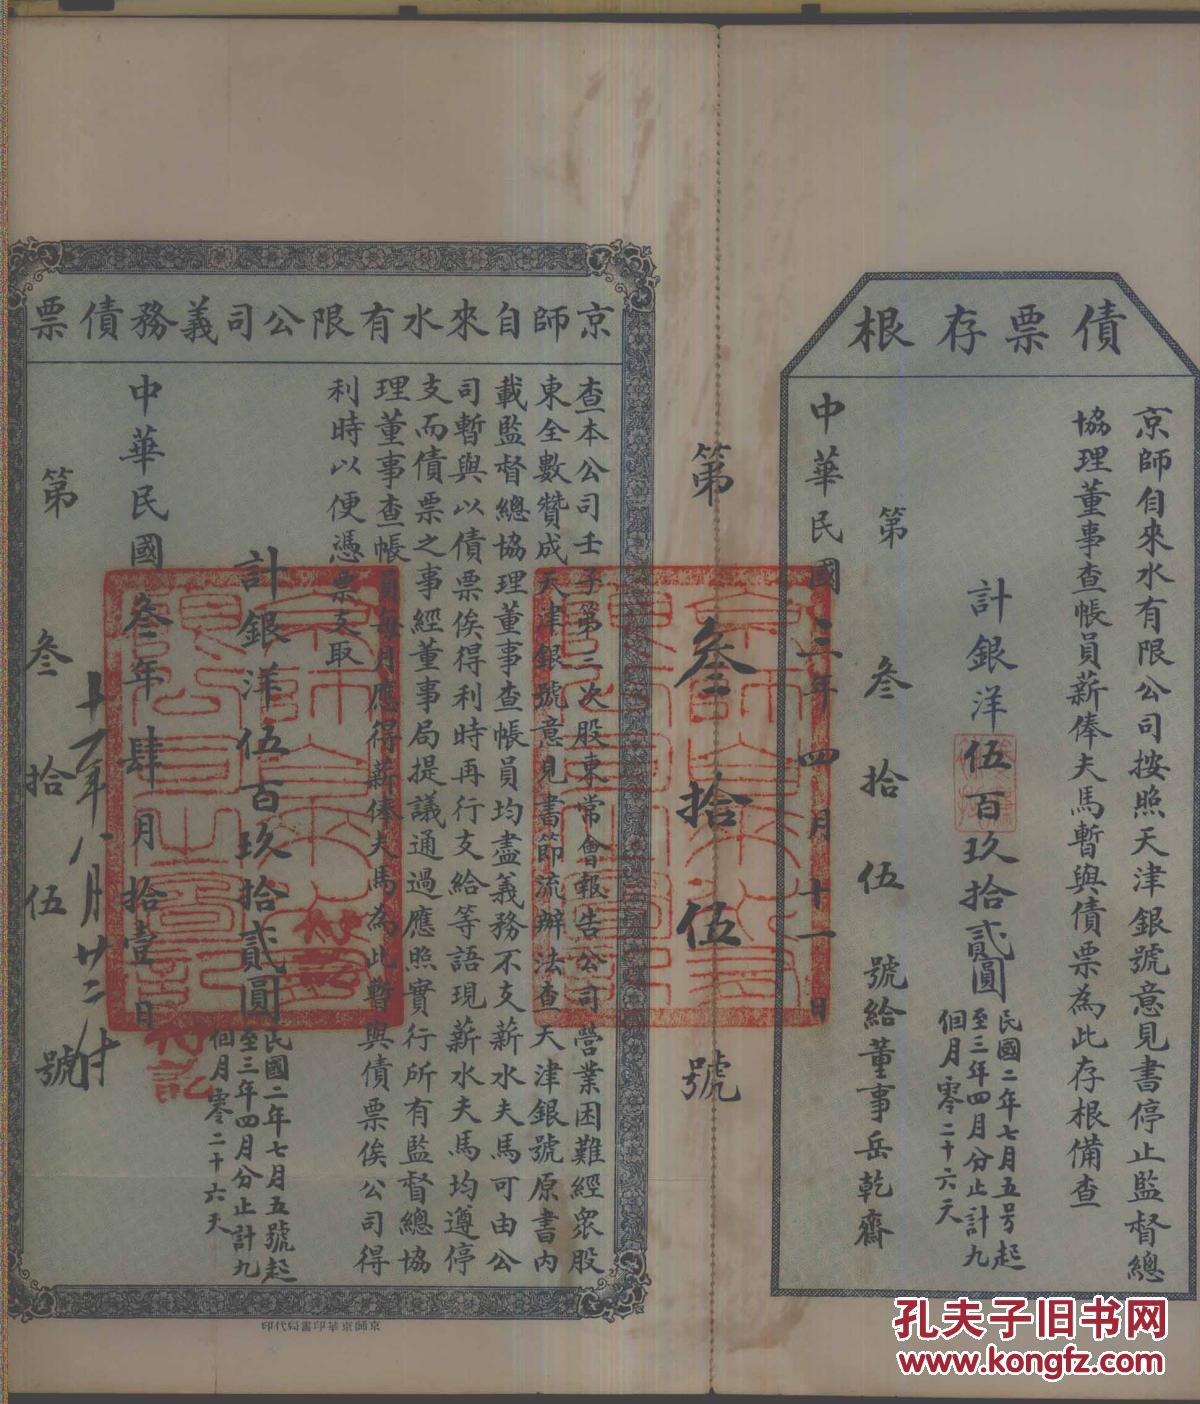 債票存根
京師自來水有限公司按照天津銀號意見書停止監督總
協理董事查帳員薪俸夫馬暫與債票為此存根備查
計銀洋伍百玖拾貳圓
民國二年七月五号起
至三年四月分止計九
個月零二十六天
第叁拾伍號給董事岳乾齋
中華民國三年四月十一日
第叁拾伍號
京師自來水有限公司義務債票
查本公司壬子第三次股東常會報告公司營業困難經眾股
東全數贊成天津銀號意見書節流辦法查天津銀號原書內
載監督總協理董事查帳員均盡義務不支薪水夫馬可由公
司暫與以債票俟得利時再行支給等語現薪水夫馬均遵停
支而債票之事經董事局提議通過應照實行所有監督總協
理董事查帳員每月應得薪俸夫馬為此暫與債票俟公司得
利時以便憑票支取
計銀洋伍百玖拾貳圓
民國二年七月五號起
至三年四月分止計九
個月零二十六天
中華民國叁年肆月拾壹日
付訖
付訖
第叁拾伍號
京師京華印書局代印
孔夫子旧书网
www.kongfz.com